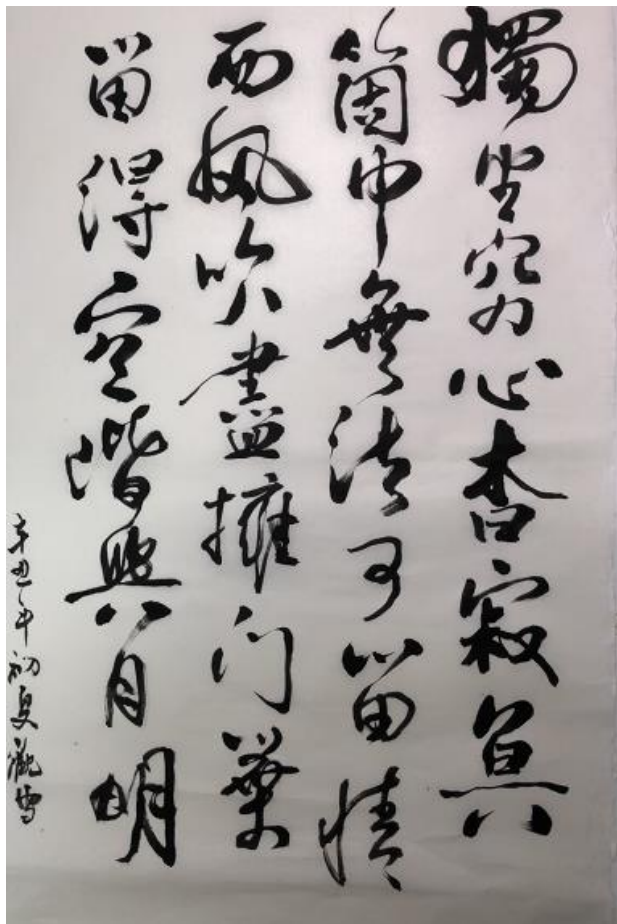 獨坐窮心杳寂冥
箇中無法可留情
西風吹盡擁門葉
留得空階與月明
辛丑年初夏觀雪